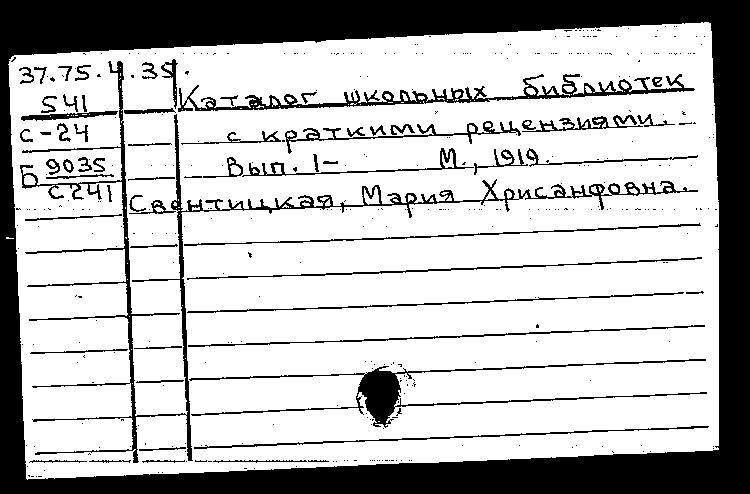 37.75.4.35.
541 Каталог школьных библиотек
с-24 с краткими рецензиями.
Б 9035 Вып. 1- М., 1919.
с241 Свентицкая, Мария Хрисанфовна.